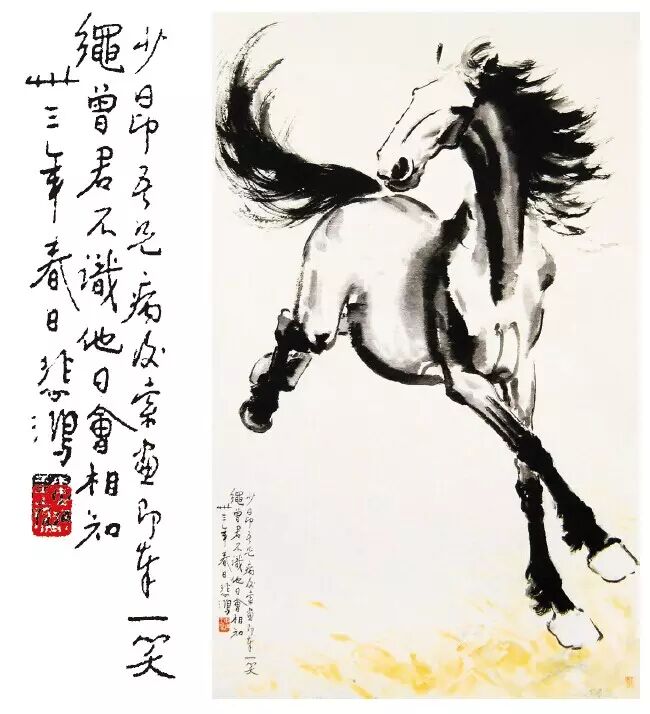 少昂吾兄病後索畫即奉一笑
繩曾君不識他日會相知
卅三年春日悲鴻
少昂吾兄病後索畫即奉一笑
繩曾君不識他日會相知
卅三年春日悲鴻